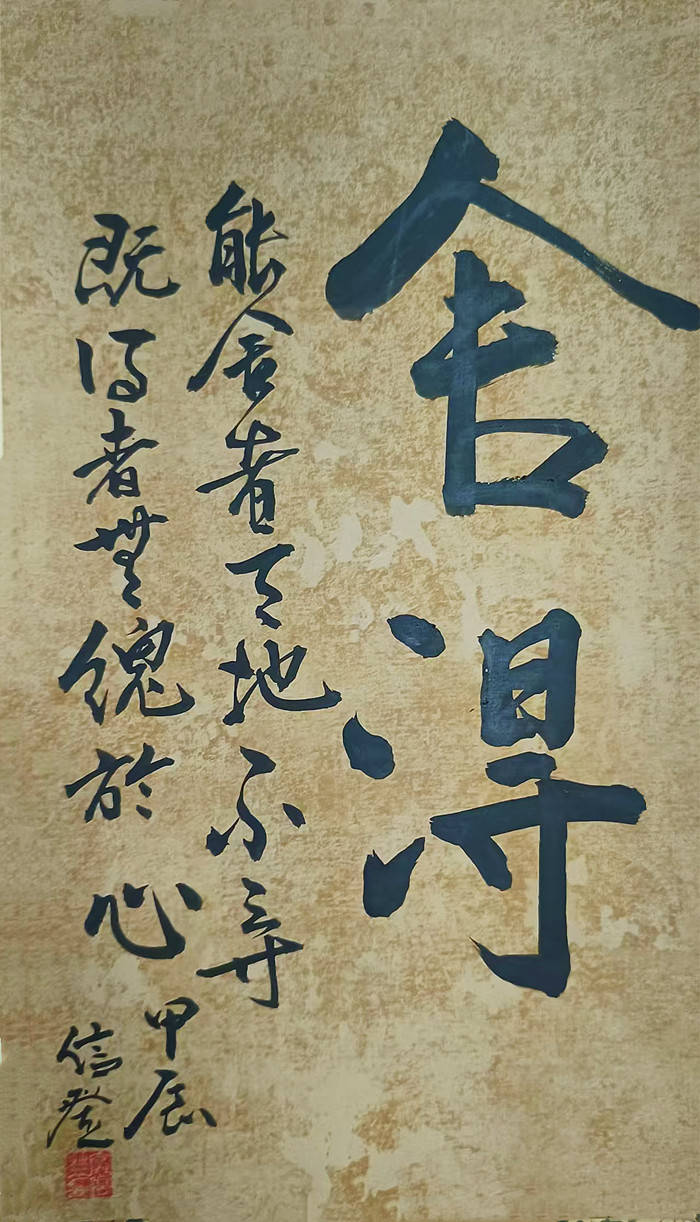 舍得
能舍者天地不弃
既得者無愧於心
甲辰
信登